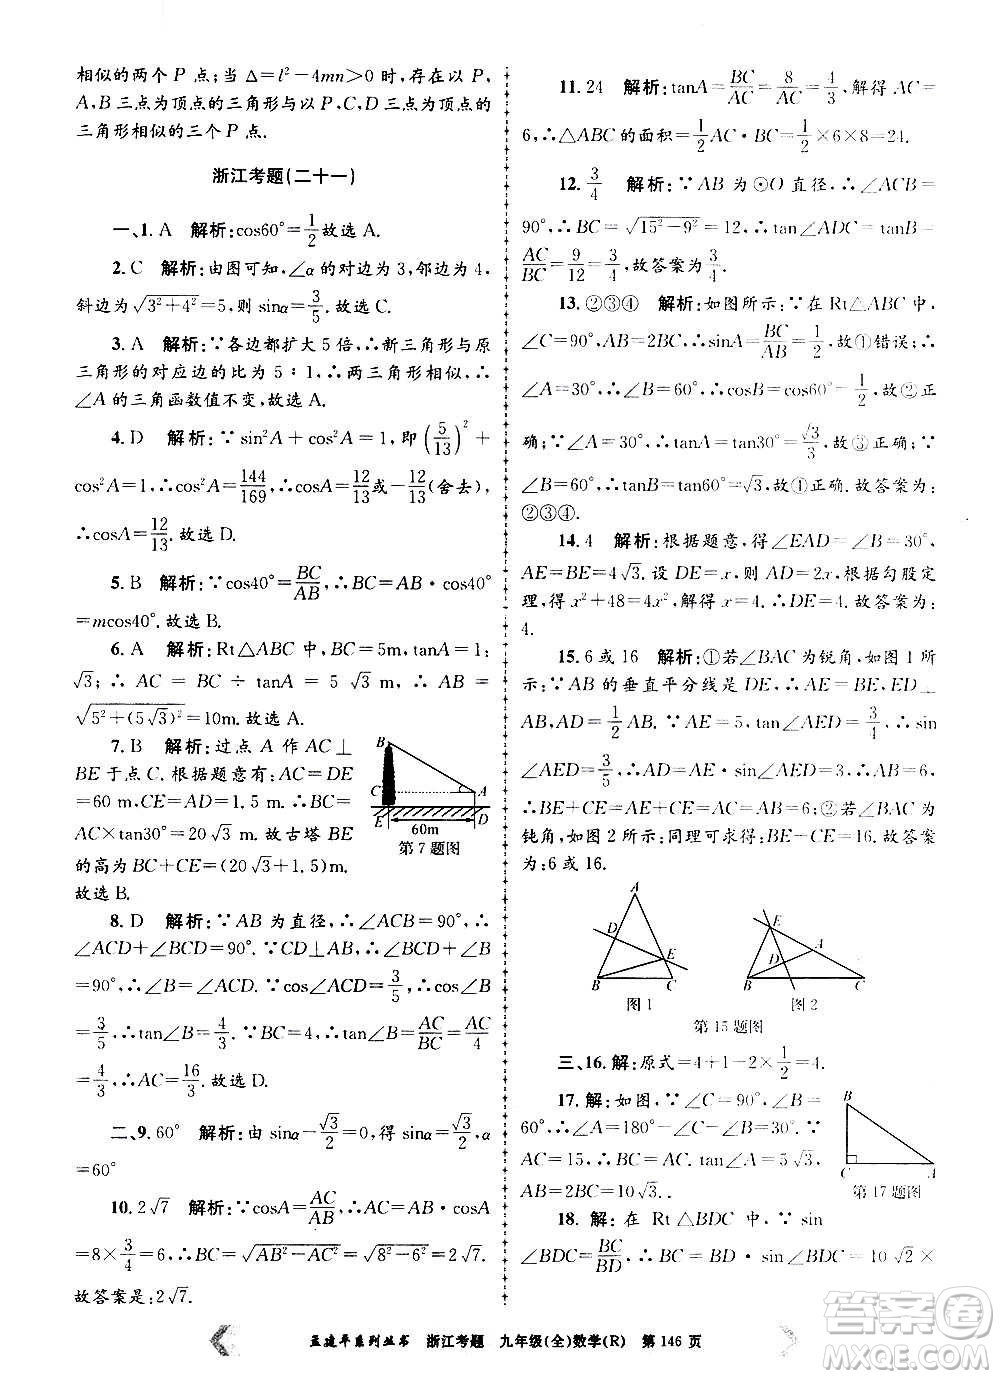 相似的两个 P 点;当 Δ=l²-4mn>0 时,存在以 P,
A,B 三点为顶点的三角形与以 P,C,D 三点为顶点的
三角形相似的三个 P 点.
浙江考题(二十一)
一、1. A 解析:cos60°=1/2 故选 A.
2. C 解析:由图可知,∠α 的对边为 3,邻边为 4,
斜边为√(3²+4²)=5,则 sinα=3/5.故选 C.
3. A 解析:∵各边都扩大 5 倍,∴新三角形与原
三角形的对应边的比为 5∶1,∴两三角形相似,∴
∠A 的三角函数值不变,故选 A.
4. D 解析:∵sin²A+cos²A=1,即(5/13)²+
cos²A=1,∴cos²A=144/169,∴cosA=12/13或-12/13(舍去),
∴cosA=12/13.故选 D.
5. B 解析:∵cos40°=BC/AB,∴BC=AB·cos40°
=mcos40°.故选 B.
6. A 解析:Rt△ABC 中,BC=5m,tanA=1∶
√3;∴AC=BC÷tanA=5√3 m,∴AB=
√(5²+(5√3)²)=10m.故选 A.
7. B 解析:过点 A 作 AC⊥
BE 于点 C.根据题意有:AC=DE
=60 m,CE=AD=1.5 m.∴BC=
AC×tan30°=20√3 m.故古塔 BE
的高为 BC+CE=(20√3+1.5)m.
故选 B.
B
C
A
E
D
60m
第 7 题图
8. D 解析:∵AB 为直径,∴∠ACB=90°,∴
∠ACD+∠BCD=90°.∵CD⊥AB,∴∠BCD+∠B
=90°,∴∠B=∠ACD.∵cos∠ACD=3/5,∴cos∠B=
3/5,∴tan∠B=4/3.∵BC=4,∴tan∠B=AC/BC=AC/4
=4/3,∴AC=16/3.故选 D.
二、9. 60° 解析:由 sinα-√3/2=0,得 sinα=√3/2,α
=60°
10. 2√7 解析:∵cosA=AC/AB,∴AC=AB·cosA
=8×3/4=6,∴BC=√(AB²-AC²)=√(8²-6²)=2√7.
故答案是:2√7.
11. 24 解析:tanA=BC/AC=8/AC=4/3,解得 AC=
6,∴△ABC 的面积=1/2 AC·BC=1/2×6×8=24.
12. 3/4 解析:∵AB 为⊙O 直径,∴∠ACB=
90°,∴BC=√(15²-9²)=12,∴tan∠ADC=tanB=
AC/BC=9/12=3/4,故答案为3/4.
13. ②③④ 解析:如图所示:∵在 Rt△ABC 中,
∠C=90°,AB=2BC,∴sinA=BC/AB=1/2,故①错误;∴
∠A=30°,∴∠B=60°,∴cosB=cos60°=1/2,故②正
确;∵∠A=30°,∴tanA=tan30°=√3/3,故③正确;∵
∠B=60°,∴tanB=tan60°=√3,故④正确.故答案为:
②③④.
14. 4 解析:根据题意,得∠EAD=∠B=30°,
AE=BE=4√3.设 DE=x,则 AD=2x,根据勾股定
理,得 x²+48=4x²,解得 x=4.∴DE=4.故答案为:
4.
15. 6 或 16 解析:①若∠BAC 为锐角,如图 1 所
示:∵AB 的垂直平分线是 DE,∴AE=BE,ED⊥
AB,AD=1/2AB,∵AE=5,tan∠AED=3/4,∴sin
∠AED=3/5,∴AD=AE·sin∠AED=3,∴AB=6,∴
BE+CE=AE+CE=AC=AB=6;②若∠BAC 为
钝角,如图 2 所示:同理可求得:BE+CE=16.故答案
为:6 或 16.
A
D
E
B
C
图 1
E
A
D
B
C
图 2
第 15 题图
三、16. 解:原式=4+1-2×1/2=4.
17. 解:如图,∵∠C=90°,∠B=
60°,∴∠A=180°-∠B-∠C=30°.∵
AC=15,∴BC=AC·tanA=5√3,
∴AB=2BC=10√3..
B
C
A
第 17 题图
18. 解:在 Rt△BDC 中,∵sin
∠BDC=BC/BD,∴BC=BD·sin∠BDC=10√2×
孟建平系列丛书 浙江考题 九年级(全)数学(R) 第 146 页